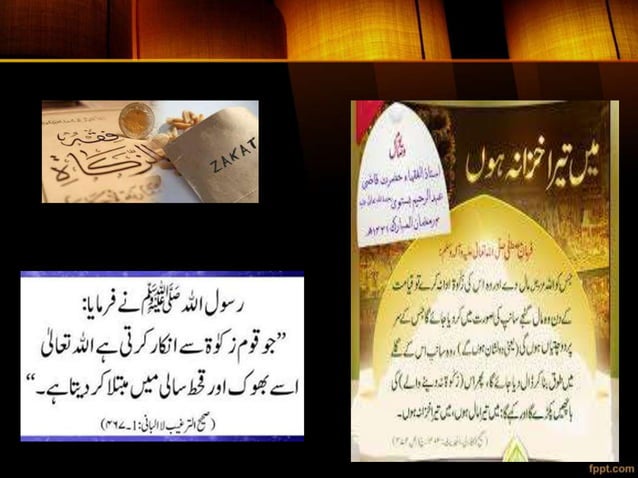 فقہ
الزكاة
ZAKAT
رسول اللہ ﷺ نے فرمایا:
”جو قوم زکوٰۃ سے انکار کرتی ہے اللہ تعالیٰ
اسے بھوک اور قحط سالی میں مبتلا کر دیتا ہے۔“
(صحیح الترغیب لا البانی:1-۴۶۷)
میں تیرا خزانہ ہوں
استاذ الفقہاء حضرت قاضی
عبد الرحیم بستوی
رمضان المبارک ۱۴۳۱ھ
فرمانِ مصطفٰی صلی اللہ تعالیٰ علیہ وآلہ وسلم:
جس کو اللہ عزوجل مال دے اور وہ اس کی زکوٰۃ ادا نہ کرے تو قیامت
کے دن وہ مال گنجے سانپ کی صورت میں کر دیا جائے گا جس کے سر
پر دو چتیاں ہوں گی (یعنی دو نشان ہوں گے)، وہ سانپ اس کے گلے
میں طوق بنا کر ڈال دیا جائے گا، پھر اس (زکوٰۃ نہ دینے والے) کی
باچھیں پکڑے گا اور کہے گا: میں تیرا مال ہوں، میں تیرا خزانہ ہوں۔
fppt.com